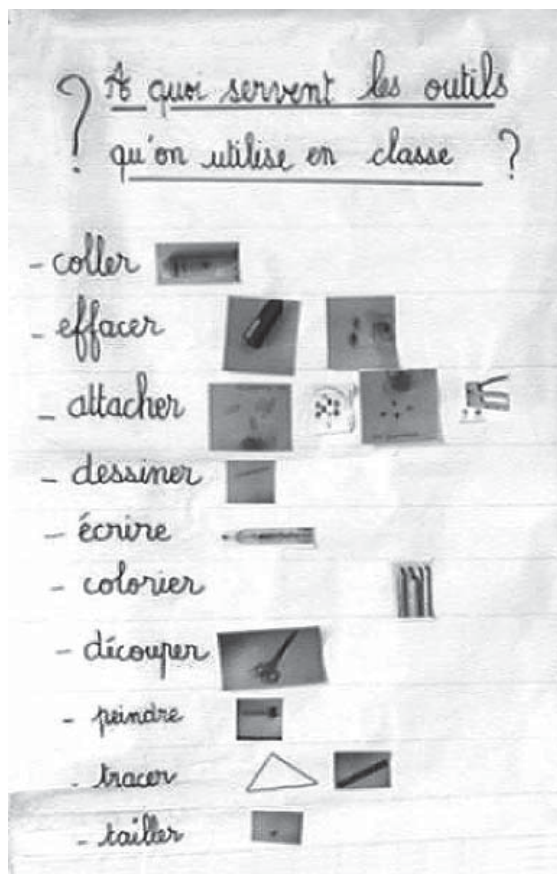 ? A quoi servent les outils
qu'on utilise en classe ?
- coller
- effacer
- attacher
- dessiner
- écrire
- colorier
- découper
- peindre
- tracer
- tailler